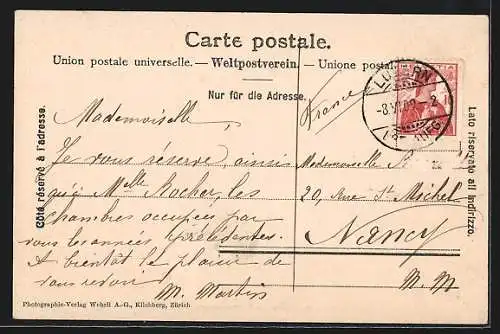 Carte postale.
Union postale universelle. — Weltpostverein. — Unione postale
Nur für die Adresse.
France
LUZERN
Côté réservé à l'adresse.
Lato riservato all indirizzo.
Mademoiselle
Je vous réserve, ainsi
qu'à Melle Rocher, les
chambres occupées par
vous les années précédentes.
A bientôt le plaisir de
vous revoir
M. Martin
Mademoiselle
20, Rue St Michel
Nancy
M. M
Photographie-Verlag Wehrli A.-G., Kilchberg, Zürich